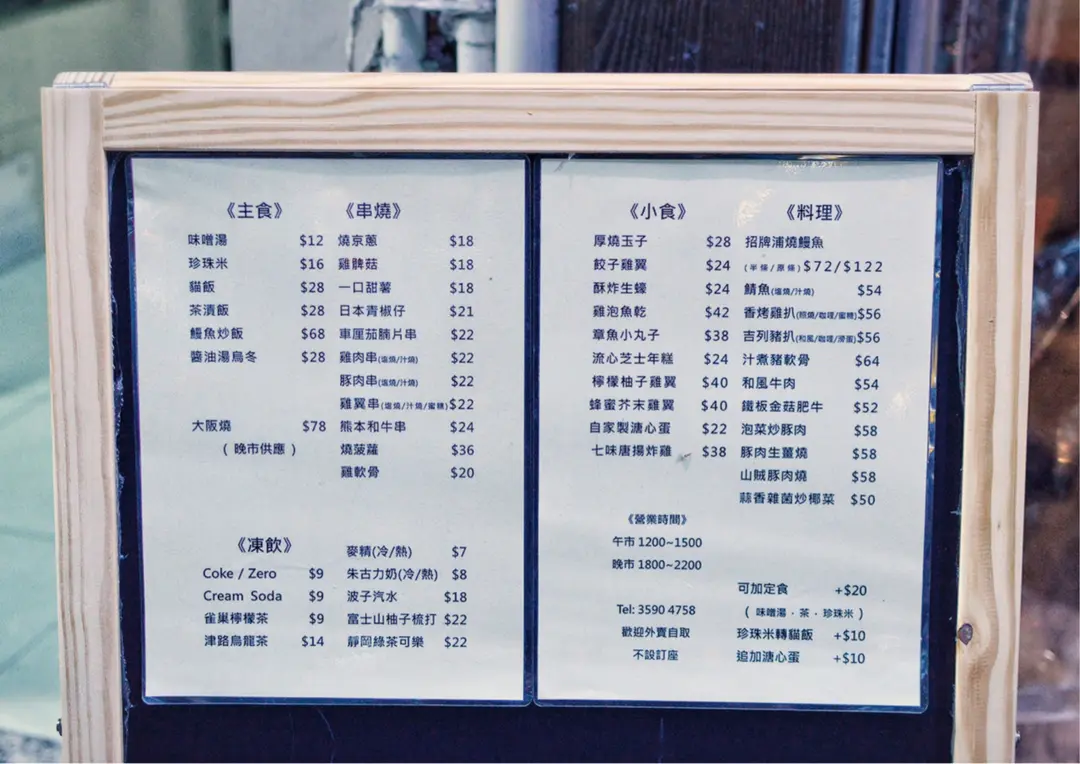 《主食》
味噌湯 $12
珍珠米 $16
貓飯 $28
茶漬飯 $28
鰻魚炒飯 $68
醬油湯烏冬 $28
大阪燒 $78
( 晚市供應 )
《串燒》
燒京蔥 $18
雞髀菇 $18
一口甜薯 $18
日本青椒仔 $21
車厘茄腩片串 $22
雞肉串(塩燒/汁燒) $22
豚肉串(塩燒/汁燒) $22
雞翼串(塩燒/汁燒/蜜糖) $22
熊本和牛串 $24
燒菠蘿 $36
雞軟骨 $20
《凍飲》
Coke / Zero $9
Cream Soda $9
雀巢檸檬茶 $9
津路烏龍茶 $14
麥精(冷/熱) $7
朱古力奶(冷/熱) $8
波子汽水 $18
富士山柚子梳打 $22
靜岡綠茶可樂 $22
《小食》
厚燒玉子 $28
餃子雞翼 $24
酥炸生蠔 $24
雞泡魚乾 $42
章魚小丸子 $38
流心芝士年糕 $24
檸檬柚子雞翼 $40
蜂蜜芥末雞翼 $40
自家製溏心蛋 $22
七味唐揚炸雞 $38
《料理》
招牌浦燒鰻魚
(半條/原條) $72/$122
鯖魚(塩燒/汁燒) $54
香烤雞扒(照燒/咖喱/蜜糖) $56
吉列豬扒(和風/咖喱/滑蛋) $56
汁煮豬軟骨 $64
和風牛肉 $54
鐵板金菇肥牛 $52
泡菜炒豚肉 $58
豚肉生薑燒 $58
山賊豚肉燒 $58
蒜香雜菌炒椰菜 $50
《營業時間》
午市 1200~1500
晚市 1800~2200
Tel: 3590 4758
歡迎外賣自取
不設訂座
可加定食 +$20
( 味噌湯．茶．珍珠米 )
珍珠米轉貓飯 +$10
追加溏心蛋 +$10